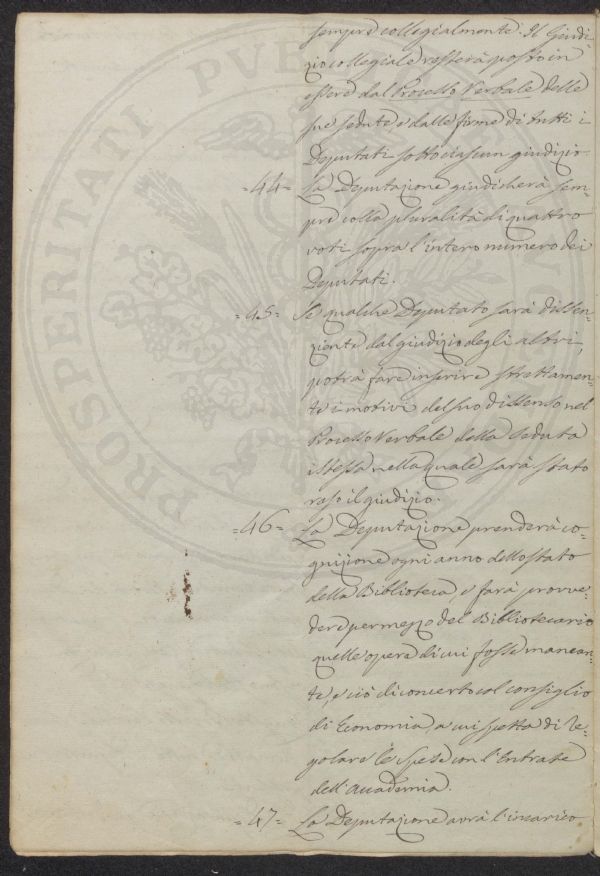 sempre collegialmente. Il Giudi-
zio collegiale resterà posto in
essere dal Processo Verbale delle
sue sedute e dalle firme di tutti i
Deputati sotto ciascun giudizio.
=44= La Deputazione giudicherà sem-
pre colla pluralità di quattro
voti sopra l'intero numero dei
Deputati.
=45= Se qualche Deputato sarà dissen-
ziente dal giudizio degli altri,
potrà fare inserire strettamen-
te i motivi del suo dissenso nel
Processo Verbale della seduta
istessa nella quale sarà stato
reso il giudizio.
=46= La Deputazione prenderà co-
gnizione ogni anno dello stato
della Biblioteca, e farà provve-
dere per mezzo del Bibliotecario
quelle opere di cui fosse mancan-
te, e ciò di concerto col consiglio
di Economia, a cui spetta di re-
golare le spese con l'Entrate
dell'Accademia.
=47= La Deputazione avrà l'incarico
PROSPERITATI